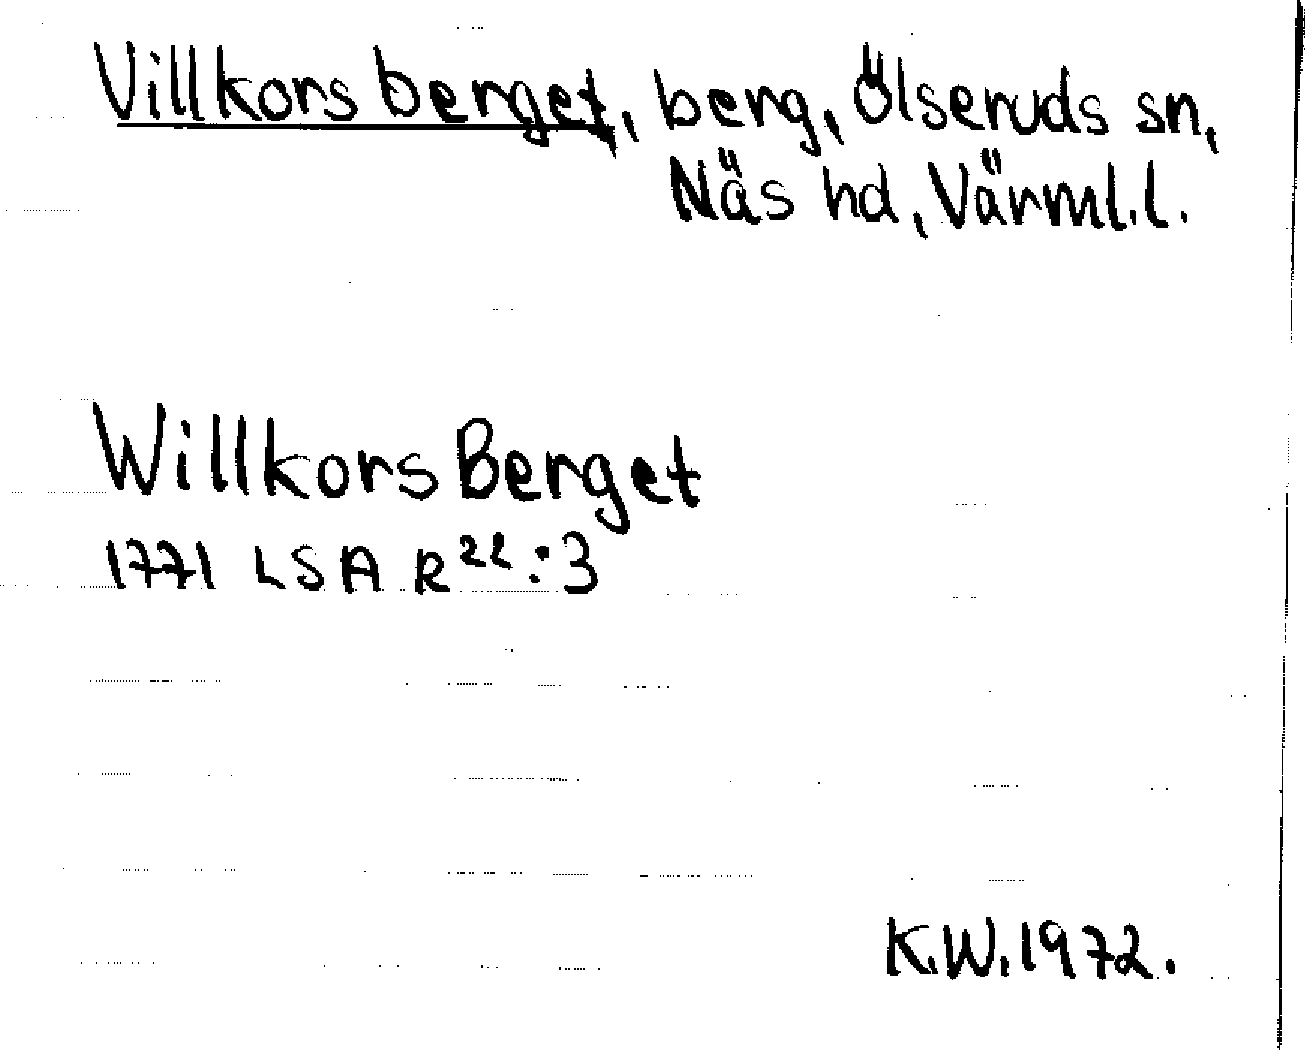 Villkorsberget, berg, Ölseruds sn,
Näs hd, Värml.l.
WillkorsBerget
1771 LSA R²²:3
K.W.1972.